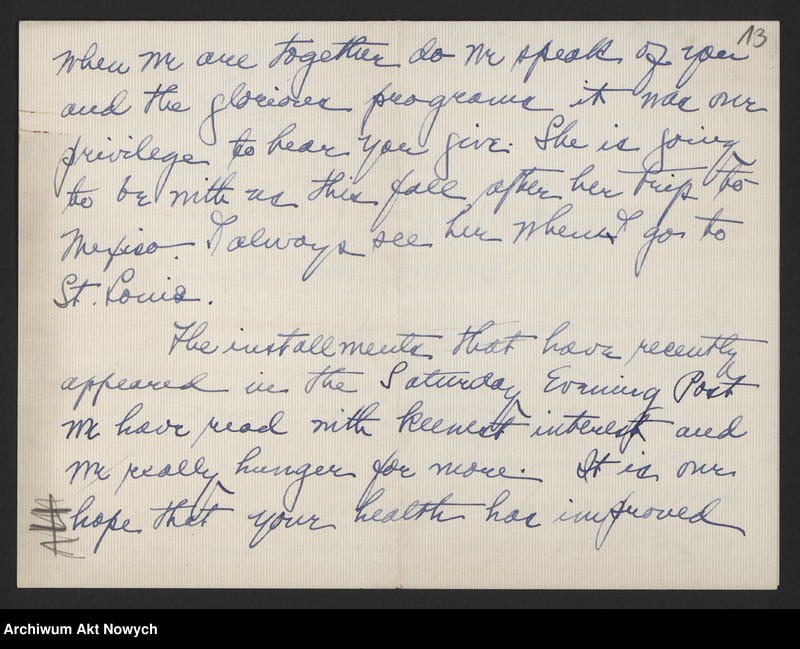 13
When we are together do we speak of you
and the glorious programs it was our
privilege to hear you give. She is going
to be with us this fall after her trip to
Mexico. I always see her when I go to
St. Louis.
The installments that have recently
appeared in the Saturday Evening Post
we have read with keenest interest and
we really hunger for more. It is our
hope that your health has improved
Archiwum Akt Nowych